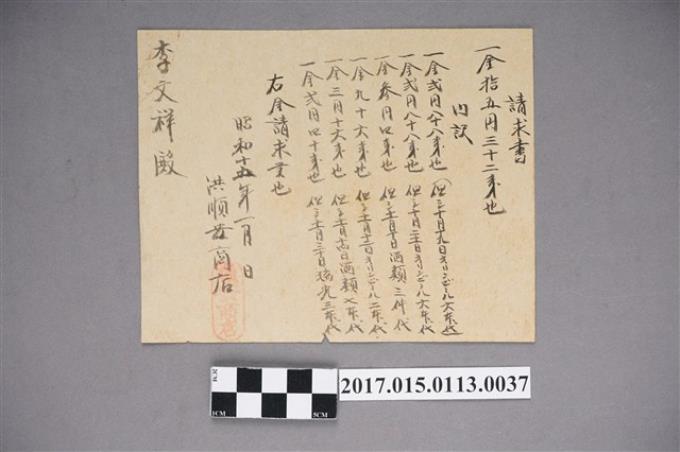 請求書
一金拾五円三十二銭也
内訳
一金弐円八十八銭也 但シ十月九日キリンビール六本代
一金弐円八十八銭也 但シ十月二十日キリンビール六本代
一金参円四銭也 但シ 月十日酒類三件代
一金九十六銭也 但シ 月十二日キリンビール二本代
一金三円十六銭也 但シ 月十四日酒類七本代
一金弐円四十銭也 但シ 月三十日瑞光三本代
右金請求 也
昭和十五年一月 日
洪順發商店
李文祥殿
1CM
5CM
2017.015.0113.0037